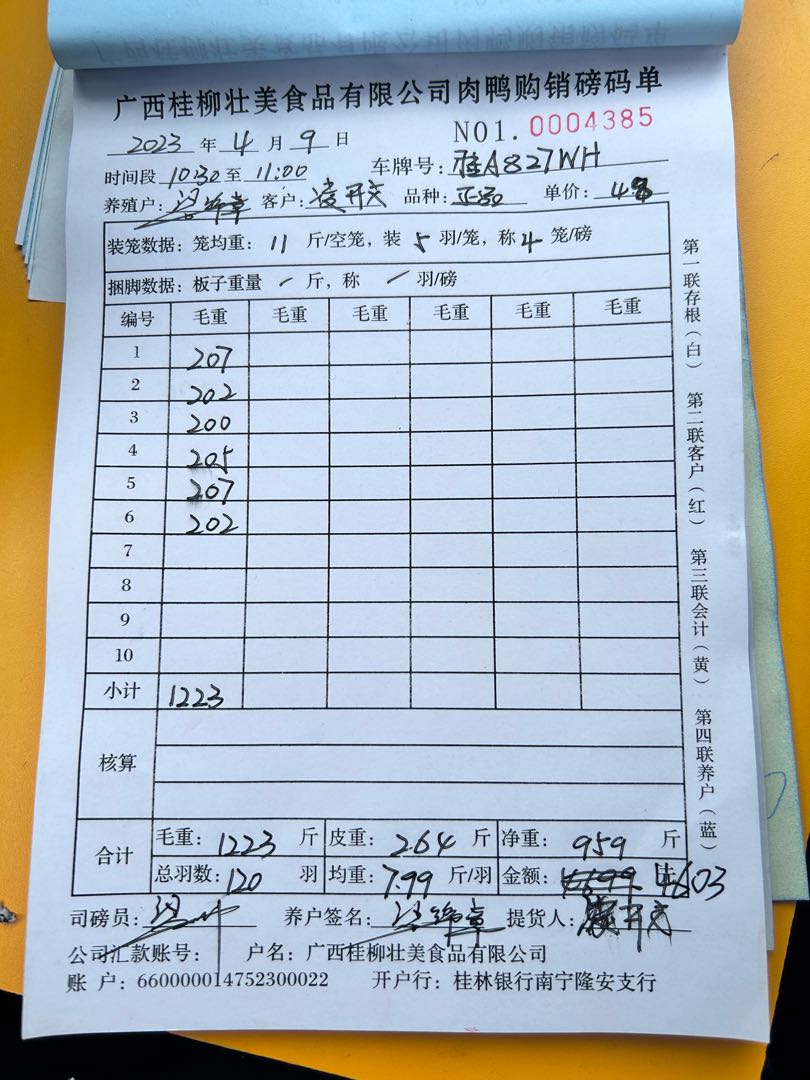 广西桂柳壮美食品有限公司肉鸭购销磅码单
2023 年 4 月 9 日 NO1. 0004385
时间段 10:30 至 11:00 车牌号: 桂A827WH
养殖户: 客户: 凌开文 品种: 正品 单价: 4.8
装笼数据: 笼均重: 11 斤/空笼, 装 5 羽/笼, 称 4 笼/磅
捆脚数据: 板子重量 / 斤, 称 / 羽/磅
编号 毛重 毛重 毛重 毛重 毛重 毛重
1 207
2 202
3 200
4 205
5 207
6 202
7
8
9
10
小计 1223
核算
合计 毛重: 1223 斤 皮重: 264 斤 净重: 959 斤
总羽数: 120 羽 均重: 7.99 斤/羽 金额: 4603
司磅员: 养户签名: 提货人: 凌开文
公司汇款账号: 户名: 广西桂柳壮美食品有限公司
账 户: 660000014752300022 开户行: 桂林银行南宁隆安支行
第一联存根(白) 第二联客户(红) 第三联会计(黄) 第四联养户(蓝)